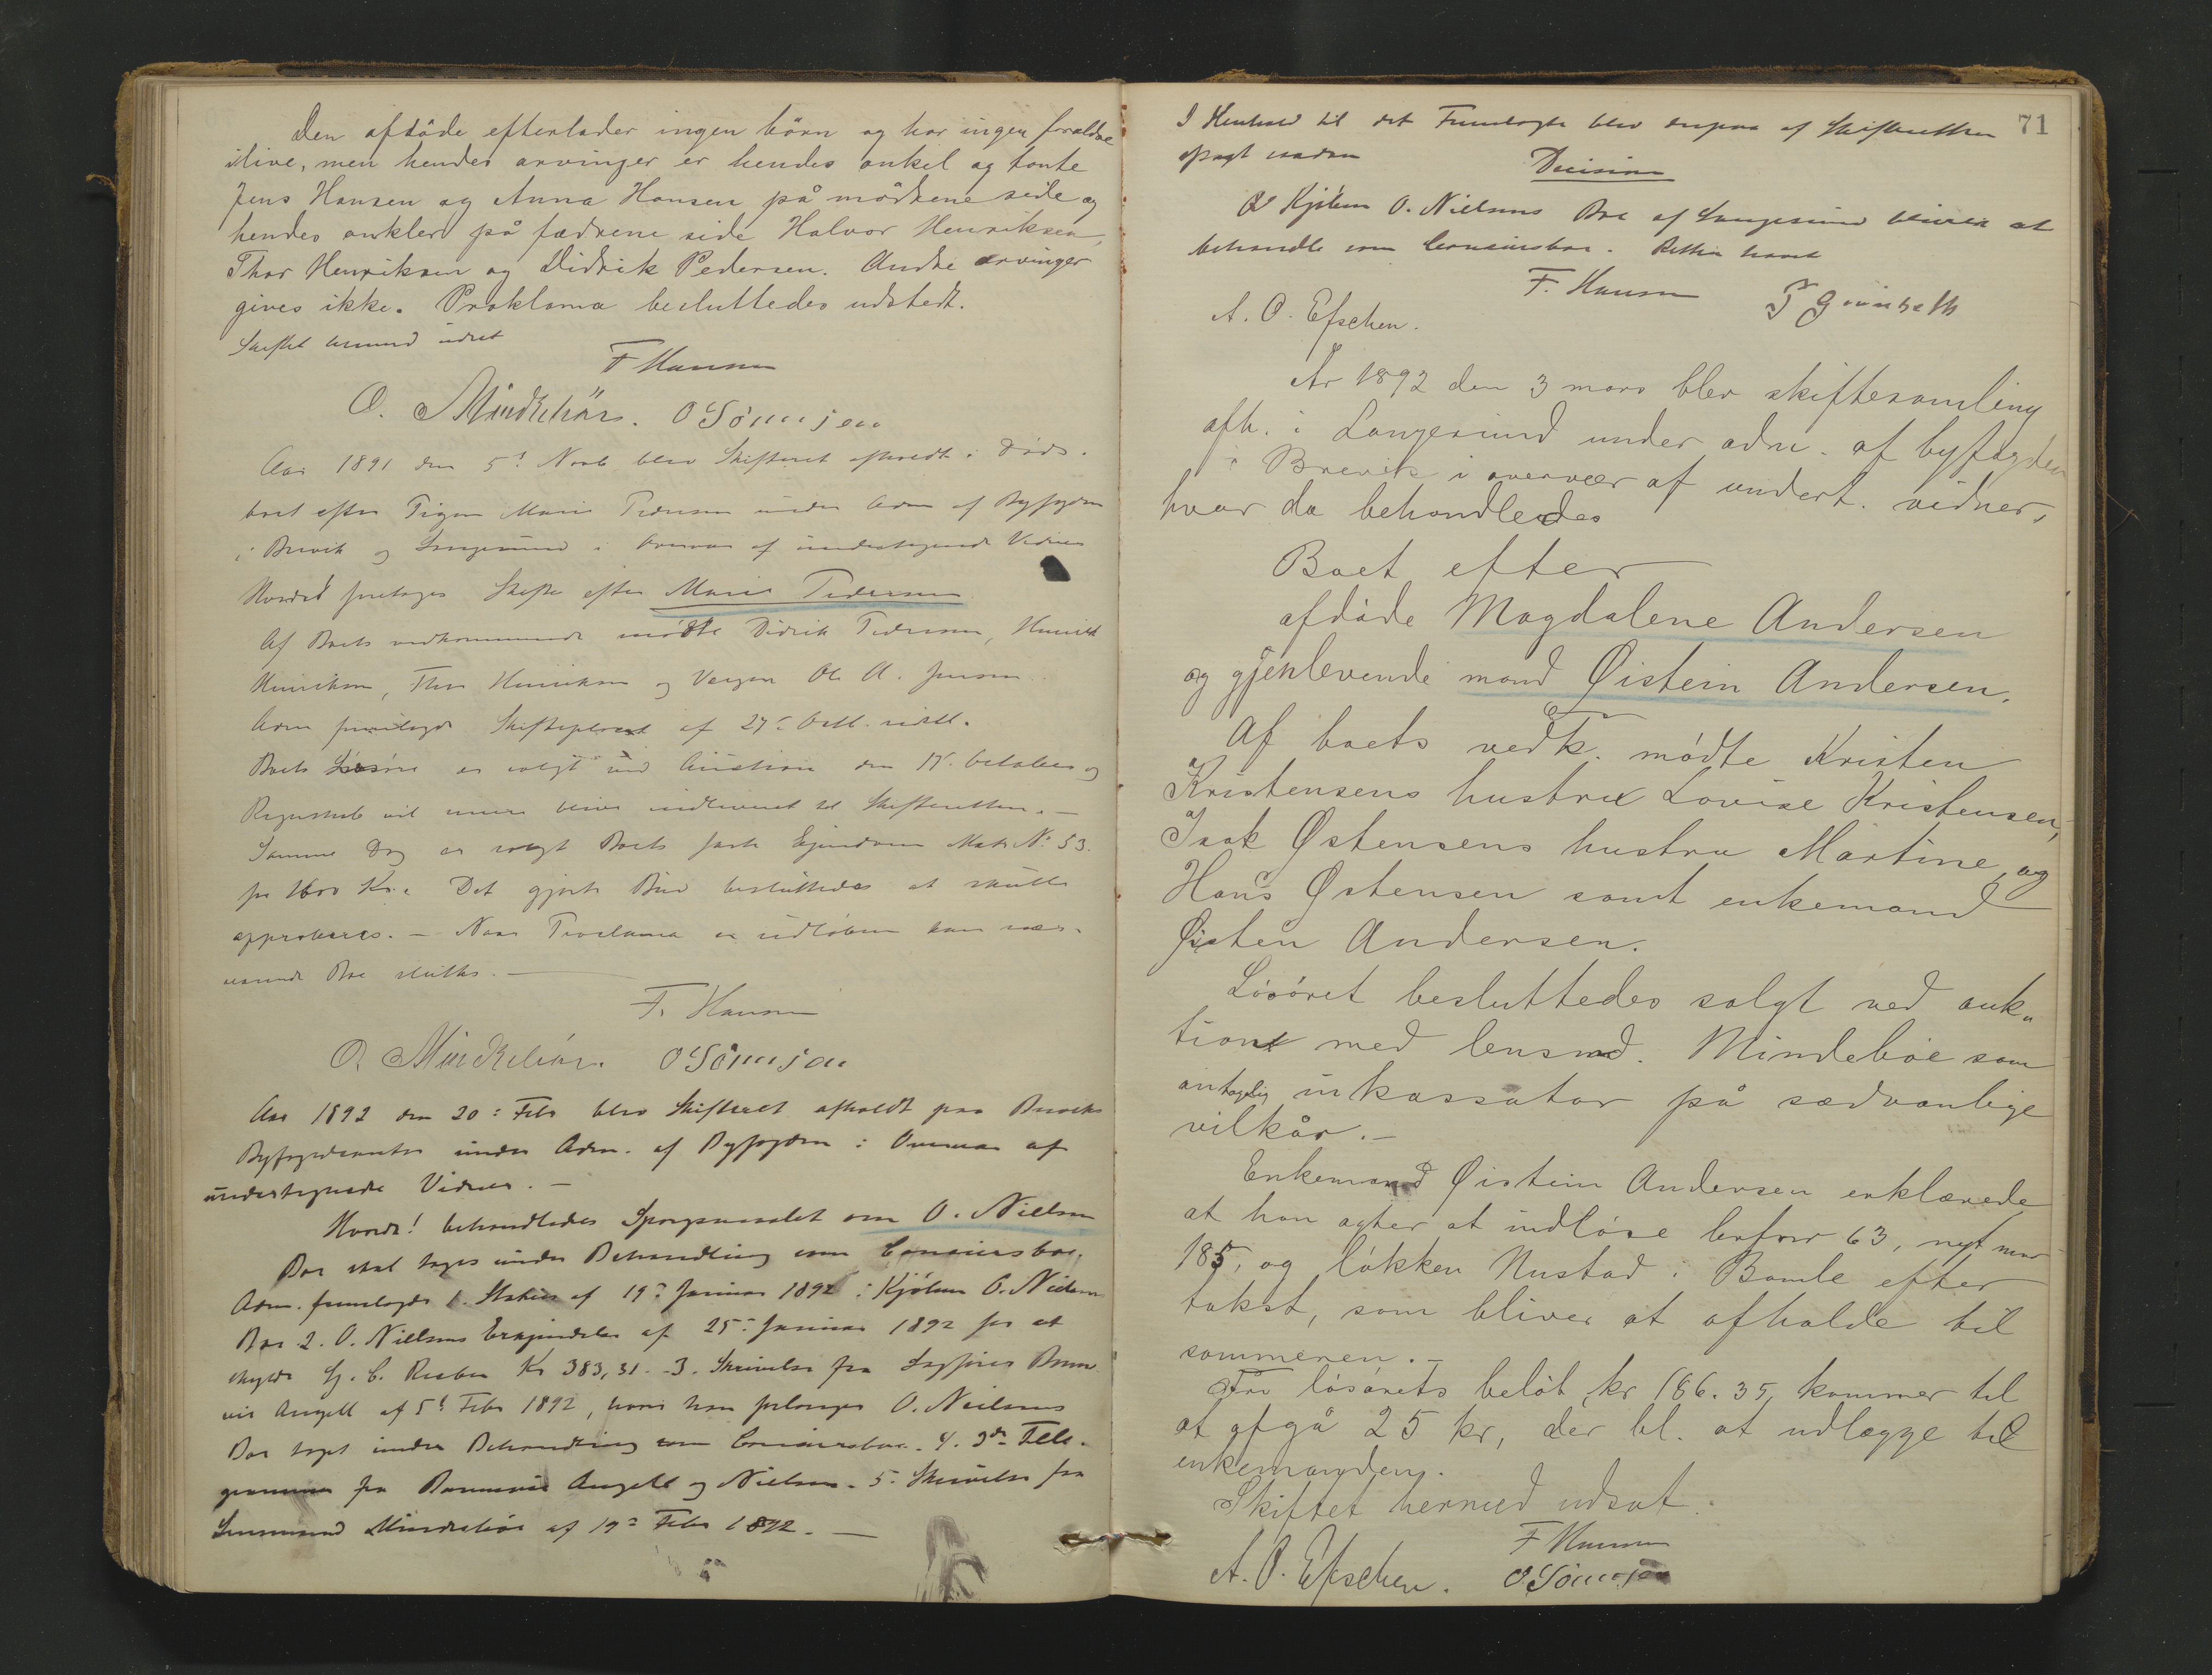 Den afdöde efterlader ingen börn og har ingen forældre
ilive, men hendes arvinger er hendes onkel og tante
Jens Hansen og Anna Hansen på mödrene side og
hendes onkler på fædrene side Halvor Henriksen,
Thor Henriksen og Didrik Pedersen. Andre arvinger
gives ikke. Proklama besluttedes udstedt.
Skiftet hermed
F Hansen
O. Mindeböe. O Sönnisen
Aar 1891 den 5t Novb blev Skifteret afholdt i Døds-
boet efter Pigen Marie Pedersen under Adm af Byfogden
i Brevik og Langesund i Overvær af undertegnede Vidner
Hvorda foretoges Skifte efter Marie Pedersen
Af Boets vedkommende mødte Didrik Pedersen, Henrik
Henriksen, Thor Henriksen og Vergen Ole A. Jensen
Adm fremlagde af 27de
Boets Løsøre er solgt ved Auction den og
Regnskab vil blive indleveret til Skifteretten. —
Samme Dag er solgt Boets faste Ejendom Matr. No. 53.
for 1600 Kr. Det gjorte Bud besluttedes at skulle
approberes. — Naar Proclama er udløben kan nær-
værende Bo sluttes. —
F. Hansen
O. Mindeböe. O Sönnisen
Aar 1892 den 20: Feb blev Skifteret afholdt paa Breviks
Byfogedcontor under Adm. af Byfogden i Overvær af
undertegnede Vidner. —
Hvorda! behandledes Spørgsmaalet om O. Nielsen
Bo skal tages under Behandling som Concursbo.
Adm. fremlagde 1. Status af 19: Januar 1892 i Kjøbm O. Nielsens
Bo 2. O. Nielsens Erkjendelse af 25: Januar 1892 for at
skylde Kr 383,31. - 3. Skrivelse fra Sagfører
Angell af 5t Febr 1892, hvori han forlanger O. Nielsens
Bo taget under Behandling som Concursbo. 4. Tele-
grammer fra Angell og Nielsen. 5. Skrivelse fra
Lensmand Mindebøe af 19: Febr 1892. —
71
I Henhold til det Fremlagte blev derpaa af Skifteretten
afsagt saadan
Decision
Kjöbm O. Nielsens Bo af Langesund bliver at
behandle som Concursbo. Retten hævet
F. Hansen
A. O. Efschen.
År 1892 den 3 mars blev skiftesamling
afh. i Langesund under adm. af byfogden
i Brevik i overvær af undert. vidner,
hvor da behandledes
Boet efter
afdöde Magdalene Andersen
og gjenlevende mand Øistein Andersen.
Af boets vedk. mödte Kristen
Kristensens hustru Lovise Kristensen,
Isak Østensens hustru Martine, og
Hans Østensen samt enkemand
Øisten Andersen.
Lösöret besluttedes solgt ved auk-
tion med lensmd. Mindeböe som
antagelig inkassator på sædvanlige
vilkår. —
Enkemand Øistein Andersen erklærede
at han agter at indlöse 63, nyt
185, og lökken Nustad i Bamle efter
takst, som bliver at afholde til
sommeren. —
Fra lösörets belöb kr 186.35, kommer til
at afgå 25 kr, der bl. at udlægge til
enkemanden.
Skiftet hermed udsat.
F Hansen
A. O. Efschen. O Sönnisen